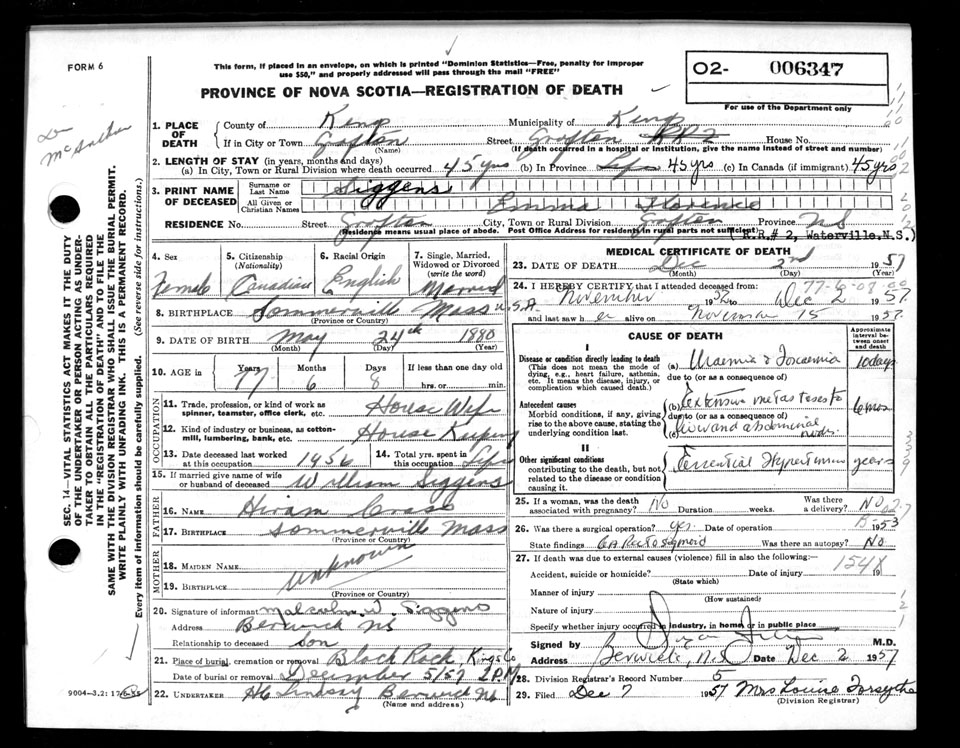 FORM 6
This form, if placed in an envelope, on which is printed "Dominion Statistics—Free, penalty for improper
use $50," and properly addressed will pass through the mail "FREE"
O2- 006347
For use of the Department only
PROVINCE OF NOVA SCOTIA—REGISTRATION OF DEATH
1. PLACE OF DEATH
County of Kings Municipality of Kings
If in City or Town Grafton (Name) Street Grafton RR2 House No.
(If death occurred in a hospital or institution, give the name instead of street and number)
2. LENGTH OF STAY (in years, months and days)
(a) In City, Town or Rural Division where death occurred 45 yrs (b) In Province 45 yrs (c) In Canada (if immigrant) 45 yrs
3. PRINT NAME OF DECEASED
Surname or Last Name Siggens
All Given or Christian Names Emma Florence
RESIDENCE House No. Street Grafton City, Town or Rural Division Grafton Province NS
(Residence means usual place of abode. Post Office Address for residents in rural parts not sufficient)
(R.R.# 2, Waterville, N.S.)
4. Sex Female
5. Citizenship (Nationality) Canadian
6. Racial Origin English
7. Single, Married, Widowed or Divorced (write the word) Married
8. BIRTHPLACE Sommerville Mass U.S.A.
(Province or Country)
9. DATE OF BIRTH May 24th 1880
(Month) (Day) (Year)
10. AGE in Years 77 Months 6 Days 8 If less than one day old
hrs. or min.
OCCUPATION
11. Trade, profession, or kind of work as spinner, teamster, office clerk, etc. House Wife
12. Kind of industry or business, as cotton-mill, lumbering, bank, etc. House Keeping
13. Date deceased last worked at this occupation 1956
14. Total yrs. spent in this occupation Life
15. If married give name of wife or husband of deceased William Siggens
FATHER
16. Name Hiram
17. Birthplace Sommerville Mass
(Province or Country)
MOTHER
18. Maiden Name Unknown
19. Birthplace
(Province or Country)
20. Signature of informant Malcolm W Siggens
Address Berwick NS
Relationship to deceased son
21. Place of burial, cremation or removal Black Rock, Kings Co
Date of burial or removal December 5/57 2 P.M
22. Undertaker Lindsay Berwick NS
(Name and address)
9004—3.2: 17-6-55
MEDICAL CERTIFICATE OF DEATH
23. DATE OF DEATH Dec 2nd 1957
(Month) (Day)
24. I HEREBY CERTIFY that I attended deceased from: 77-6-08-00
November 1952 to Dec 2 1957
and last saw her alive on November 15 1957
CAUSE OF DEATH
Approximate interval between onset and death
I
Disease or condition directly leading to death
(This does not mean the mode of dying, e.g., heart failure, asthma, etc. It means the disease, injury, or complication which caused death.)
(a) Uraemia & Toxaemia 10 days
due to (or as a consequence of)
Antecedent causes
Morbid conditions, if any, giving rise to the above cause, stating the underlying condition last.
(b) Extensive metastases to 6 mos
due to (or as a consequence of)
(c) liver and abdominal nodes.
II
Other significant conditions
contributing to the death, but not related to the disease or condition causing it.
Essential Hypertension years
25. If a woman, was the death associated with pregnancy? No Duration weeks. Was there a delivery? No
26. Was there a surgical operation? yes Date of operation 53
State findings CA Rectosigmoid Was there an autopsy? No
27. If death was due to external causes (violence) fill in also the following:— 154X
Accident, suicide or homicide? Date of injury 19
(State which)
Manner of injury
(How sustained)
Nature of injury
Specify whether injury occurred in industry, in home, or in public place
Signed by M.D.
Address Berwick, N.S Date Dec 2 1957
28. Division Registrar's Record Number 5
29. Filed Dec 7 1957 Mrs Louise Forsythe
(Division Registrar)
SEC. 14—VITAL STATISTICS ACT MAKES IT THE DUTY
OF THE UNDERTAKER OR PERSON ACTING AS UNDER-
TAKER TO OBTAIN ALL THE PARTICULARS REQUIRED
IN THE "REGISTRATION OF DEATH" AND TO FILE THE
SAME WITH THE DIVISION REGISTRAR WHO SHALL ISSUE THE BURIAL PERMIT.
WRITE PLAINLY WITH UNFADING INK. THIS IS A PERMANENT RECORD.
Every item of information should be carefully supplied. (See reverse side for instructions.)